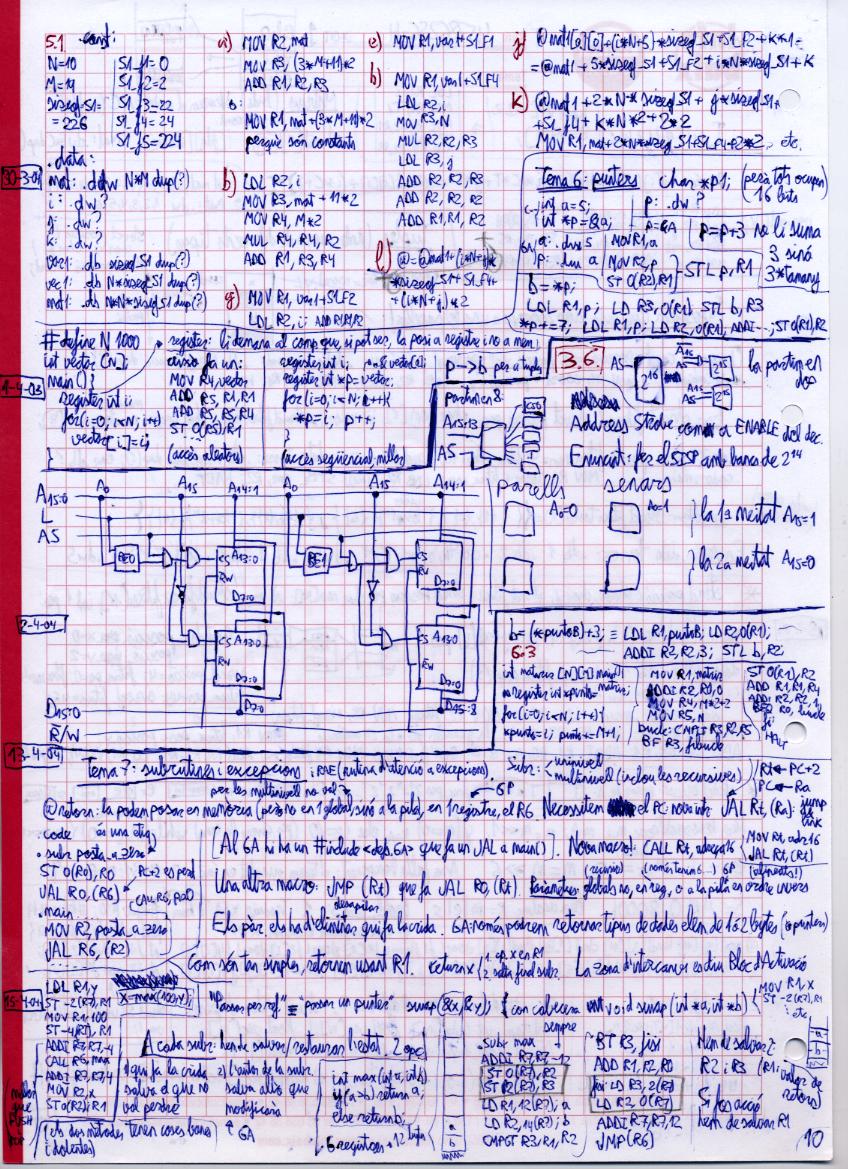 5.1 const:
N=10
M=14
sizeof_S1=
=226
S1_f1=0
S1_f2=2
S1_f3=22
S1_f4=24
S1_f5=224
.data:
30-3-04
mat: .dw N*M dup(?)
i: .dw ?
j: .dw ?
k: .dw ?
var1: .db sizeof_S1 dup(?)
vec1: .db N*sizeof_S1 dup(?)
mat1: .db N*N*sizeof_S1 dup(?)
a) MOV R2, mat
MOV R3, (3*M+11)*2
ADD R1, R2, R3
o:
MOV R1, mat+(3*M+11)*2
perquè són constants
b) LDL R2, i
MOV R3, mat+11*2
MOV R4, M*2
MUL R4, R4, R2
ADD R1, R3, R4
g) MOV R1, var1+S1_F2
LDL R2, i; ADD R1,R1,R2
e) MOV R1, var1+S1_F1
h) MOV R1, var1+S1_F4
LDL R2, i
MOV R3, N
MUL R2, R2, R3
LDL R3, j
ADD R2, R2, R3
ADD R2, R2, R2
ADD R1, R1, R2
l) @=@mat1+(i*N+j)*
*sizeof_S1+S1_F4+
+(i*N+j)*2
j) @mat1[0][0]+(i*N+5)*sizeof_S1+S1_F2+K*1=
=@mat1+5*sizeof_S1+S1_F2+i*N*sizeof_S1+K
k) @mat1+2*N*sizeof_S1+j*sizeof_S1+
+S1_f4+K*N*2+2*2
MOV R1, mat+2*N*sizeof_S1+S1_F4+2*2, etc.
Tema 6: punters char *p1; (però tots ocupen 16 bits)
int a=5;
int *p=&a;
p: .dw?
p=&A
a: .dw 5
p: .dw a
MOV R1, a
MOV R2, p
ST 0(R2), R1
STL p, R1
p=p+3 no li suma
3 sinó
3*tamany
b=*p;
LDL R1, p; LD R3, 0(R1); STL b, R3
*p+=7; LDL R1, p; LD R2, 0(R1); ADDI...; ST 0(R1), R2
1-4-03
#define N 1000
int vector [N];
main() {
register int i
for(i=0; i<N; i++)
vector[i]=i;
}
register: li demana al comp que, si pot ser, la posi a registre i no a mem
això fa un:
MOV R4, vector
ADD R5, R1, R1
ADD R5, R5, R4
ST 0(R5), R1
(accés aleatori)
register int i;
register int *p=vector;
for(i=0; i<N; i++){
*p=i; p++;
}
(accés seqüencial, millor)
p->b per a tuples
3.6.
AS
2^16
A15
AS
2^15
la partim en dos
partim en 8:
A15:13
AS
CS0
Address Strobe com a ENABLE del dec.
Enunciat: fer el SISP amb bancs de 2^14
parells senars
A0=0 A0=1
la 1a meitat A15=1
la 2a meitat A15=0
A15:0
L
AS
A0 A15 A14:1 A0 A15 A14:1
BE0 BE1
CS A13:0
RW
D7:0
CS A13:0
RW
D7:0
D7:0 D15:8
D15:0
R/W
2-4-04
b=(*puntoB)+3; ≡ LDL R1, puntoB; LD R2, 0(R1);
ADDI R2, R2, 3; STL b, R2;
6.3
int matrius [N][M] main(){
register int *punt=matriu;
for(i=0; i<N; i++){
*punt=i; punt+=M+1;
}
MOV R1, matriu
ADDI R2, R0, 0
MOV R4, M*2+2
MOV R5, N
bucle: CMPLT R3, R2, R5
BF R3, fibucle
ST 0(R1), R2
ADD R1, R1, R4
ADDI R2, R2, 1
BF R0, bucle
13-4-04
Tema 7: subrutines i excepcions i RAE (rutina d'atenció a excepcions).
Subr: uninivell
multinivell (inclou les recursives)
Rt←PC+2
PC←Ra
per les multinivell no val
6P
@retorn: la podem posar en memòria (però no en 1 global, sinó a la pila), en 1 registre, el R6 Necessitem el PC: nova intr JAL Rt, (Ra): jump and link
code és una etiq
.subr posta_a_zero
ST 0(R0), R0
JAL R0, (R6)
.main
MOV R2, posta_a_zero
JAL R6, (R2)
PC+2 es posa
[Al 6A hi ha un #include <defs.6A> que fa un JAL a main()]. Nova macro!: CALL Rt, adreça16
MOV Rt, adr16
JAL Rt, (Rt)
Una altra macro: JMP (Rt) que fa JAL R0, (Rt). Paràmetres: globals no, en reg, o a la pila en ordre invers
desapilar
Els pàr. els ha d'eliminar qui fa la crida. 6A: només podrem retornar tipus de dades elem de 1 ó 2 bytes (o punters)
Com són tan simples, retornen usant R1. return x
1. op. x en R1
2. salta final subr.
La zona d'intercanvi es diu Bloc d'Activació
15-4-04
LDL R1, y
ST -2(R7), R1
MOV R1, 100
ST -4(R7), R1
ADDI R7, R7, -4
CALL R6, max
ADDI R7, R7, 4
MOV R2, x
ST 0(R2), R1
X=max(100,y);
"passar per ref." ≡ "passar un punter" swap(&x, &y); { con cabecera void swap(int *a, int *b)
MOV R1, x
ST -2(R7), R1
etc
A cada subr: hem de salvar/restaurar l'estat. 2 opc:
1) qui fa la crida
salva el que no
vol perdre
2) l'autor de la subr.
salva allò que
modificarà
↑ 6A
(els dos mètodes tenen coses bones
i dolentes)
int max(int a, int b){
if(a>b) return a;
else return b;
6 registres = 12 bytes
a
b
sempre
.subr max
ADDI R7, R7, -12
ST 0(R7), R2
ST 2(R7), R3
LD R1, 12(R7); a
LD R2, 14(R7); b
CMPGT R3, R1, R2
BT R3, fisi
ADD R1, R2, R0
fisi: LD R3, 2(R7)
LD R2, 0(R7)
ADDI R7, R7, 12
JMP (R6)
Hem de salvar
R2 i R3 (R1: valor de retorn)
Si fos acció
hem de salvar R1
10